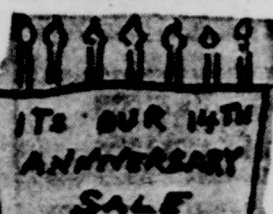 ITS OUR 14TH
ANNIVERSARY
SALE